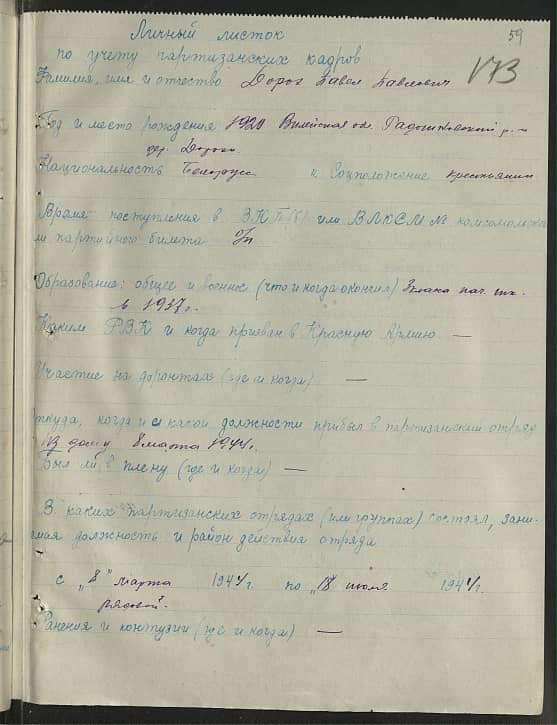 59
Личный листок
по учету партизанских кадров
173
Фамилия, имя и отчество Дорох Павел Павлович
Год и место рождения 1920 Вилейская обл. Радошковский р-н
дер. Дороки
Национальность Белорус и Соцположение крестьянин
Время поступления в ВКП(б) или ВЛКСМ № комсомольско
и партийного билета б/п
Образование: общее и военное (что и когда окончил) 3 класа нач. шк.
в 1937 г.
Каким РВК и когда призван в Красную Армию —
Участие на фронтах (где и когда) —
Откуда, когда и с какой должности прибыл в партизанский отряд
Из дому 8 марта 1944 г.
Был ли в плену (где и когда) —
В каких партизанских отрядах (или группах) состоял, зани-
емая должность и район действия отряда
с „8" марта 1944 г. по „18 июля 1944 г.
рядовой.
Ранения и контузии (где и когда) —